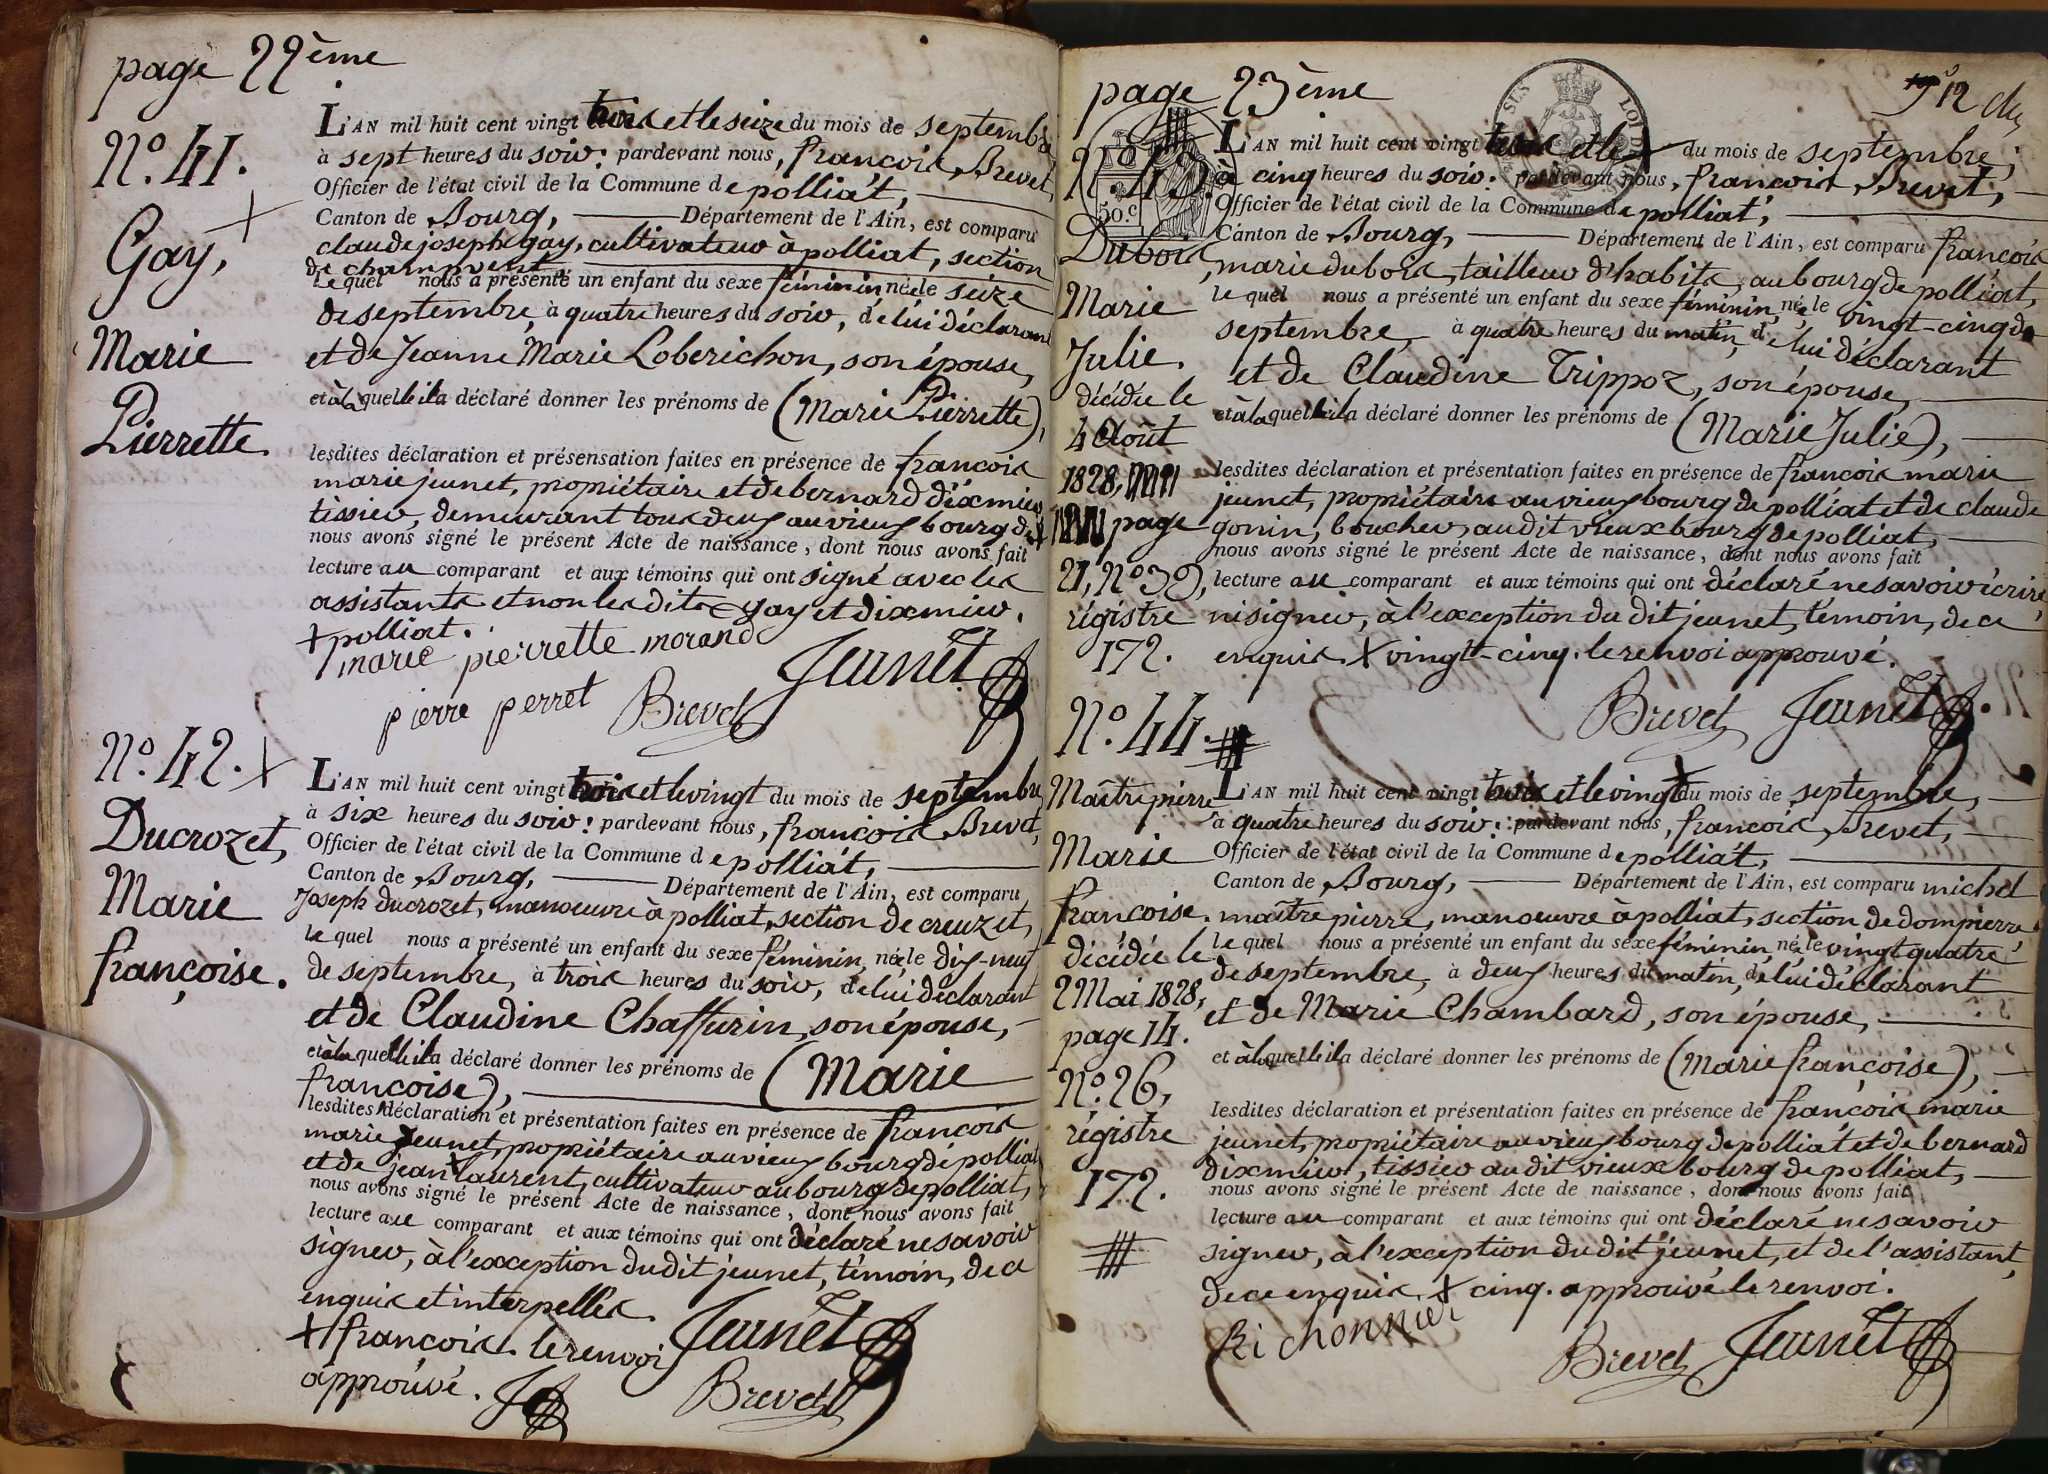 page 22ème
N.° 41.
Gay,
Marie
Pierrette.
L'AN mil huit cent vingt trois et le seize du mois de septembre
à sept heures du soir: pardevant nous, françois Brevet,
Officier de l'état civil de la Commune de polliat,
Canton de Bourg, Département de l'Ain, est comparu
claude joseph gay, cultivateur à polliat, section
de champvent,
le quel nous a présenté un enfant du sexe féminin née le seize
de septembre, à quatre heures du soir, de lui déclarant
et de Jeanne Marie Loberichon, son épouse,
et à la quelle il a déclaré donner les prénoms de (Marie Pierrette),
lesdites déclaration et présensation faites en présence de françois
marie jeunet, propriétaire et de bernard dixmier
tissier, demeurant tous deux au vieux bourg de +
nous avons signé le présent Acte de naissance, dont nous avons fait
lecture au comparant et aux témoins qui ont signé avec les
assistants et non les dits gay et dixmier.
+ polliat.
marie pierrette morand
Jeunet
pierre perret Brevet
N.° 42.
Ducrozet,
Marie
françoise.
L'AN mil huit cent vingt trois et le vingt du mois de septembre
à six heures du soir: pardevant nous, françois Brevet,
Officier de l'état civil de la Commune de polliat,
Canton de Bourg, Département de l'Ain, est comparu
Joseph Ducrozet, manoeuvre à polliat, section de creuzet,
le quel nous a présenté un enfant du sexe féminin, née le dix-neuf
de septembre, à trois heures du soir, de lui déclarant
et de Claudine Chaffurin, son épouse,
et à la quelle il a déclaré donner les prénoms de (Marie
françoise),
lesdites déclaration et présentation faites en présence de françois
marie jeunet, propriétaire au vieux bourg de polliat
et de jean + laurent, cultivateur au bourg de polliat,
nous avons signé le présent Acte de naissance, dont nous avons fait
lecture au comparant et aux témoins qui ont déclaré ne savoir
signer, à l'exception du dit jeunet, témoin, de ce
enquis et interpellés.
+ françois. le renvoi
approuvé.
Jeunet
Brevet
page 23ème
12
N.° 43.
50.c
Dubois,
Marie
Julie.
décédée le
4 Août
1828,
page
21, N.° 39,
régistre
172.
L'AN mil huit cent vingt trois et le + du mois de septembre,
à cinq heures du soir: pardevant nous, françois Brevet,
Officier de l'état civil de la Commune de polliat,
Canton de Bourg, Département de l'Ain, est comparu françois
marie dubois, tailleur d'habits, au bourg de polliat,
le quel nous a présenté un enfant du sexe féminin, née le vingt-cinq de
septembre, à quatre heures du matin, de lui déclarant
et de Claudine Trippoz, son épouse,
et à la quelle il a déclaré donner les prénoms de (Marie Julie),
lesdites déclaration et présentation faites en présence de françois marie
jeunet, propriétaire au vieux bourg de polliat et de claude
gonin, boucher, audit vieux bourg de polliat,
nous avons signé le présent Acte de naissance, dont nous avons fait
lecture au comparant et aux témoins qui ont déclaré ne savoir écrire,
ni signer, à l'exception du dit jeunet, témoin, de ce
enquis. + vingt-cinq. le renvoi approuvé.
Brevet Jeunet
N.° 44.
Maîtrepierre
Marie
françoise.
décédée le
2 Mai 1828,
page 14.
N.° 26,
régistre
172.
L'AN mil huit cent vingt trois et le vingt + du mois de septembre,
à quatre heures du soir: pardevant nous, françois Brevet,
Officier de l'état civil de la Commune de polliat,
Canton de Bourg, Département de l'Ain, est comparu michel
maître pierre, manoeuvre à polliat, section de dompierre
le quel nous a présenté un enfant du sexe féminin, née le vingt quatre
de septembre, à deux heures du matin, de lui déclarant
et de Marie Chambard, son épouse,
et à la quelle il a déclaré donner les prénoms de (Marie françoise),
lesdites déclaration et présentation faites en présence de françois marie
jeunet, propriétaire au vieux bourg de polliat et de bernard
dixmier, tissier au dit vieux bourg de polliat,
nous avons signé le présent Acte de naissance, dont nous avons fait
lecture au comparant et aux témoins qui ont déclaré ne savoir
signer, à l'exception du dit jeunet, et de l'assistant,
de ce enquis. + cinq. approuvé le renvoi.
Brevet Jeunet